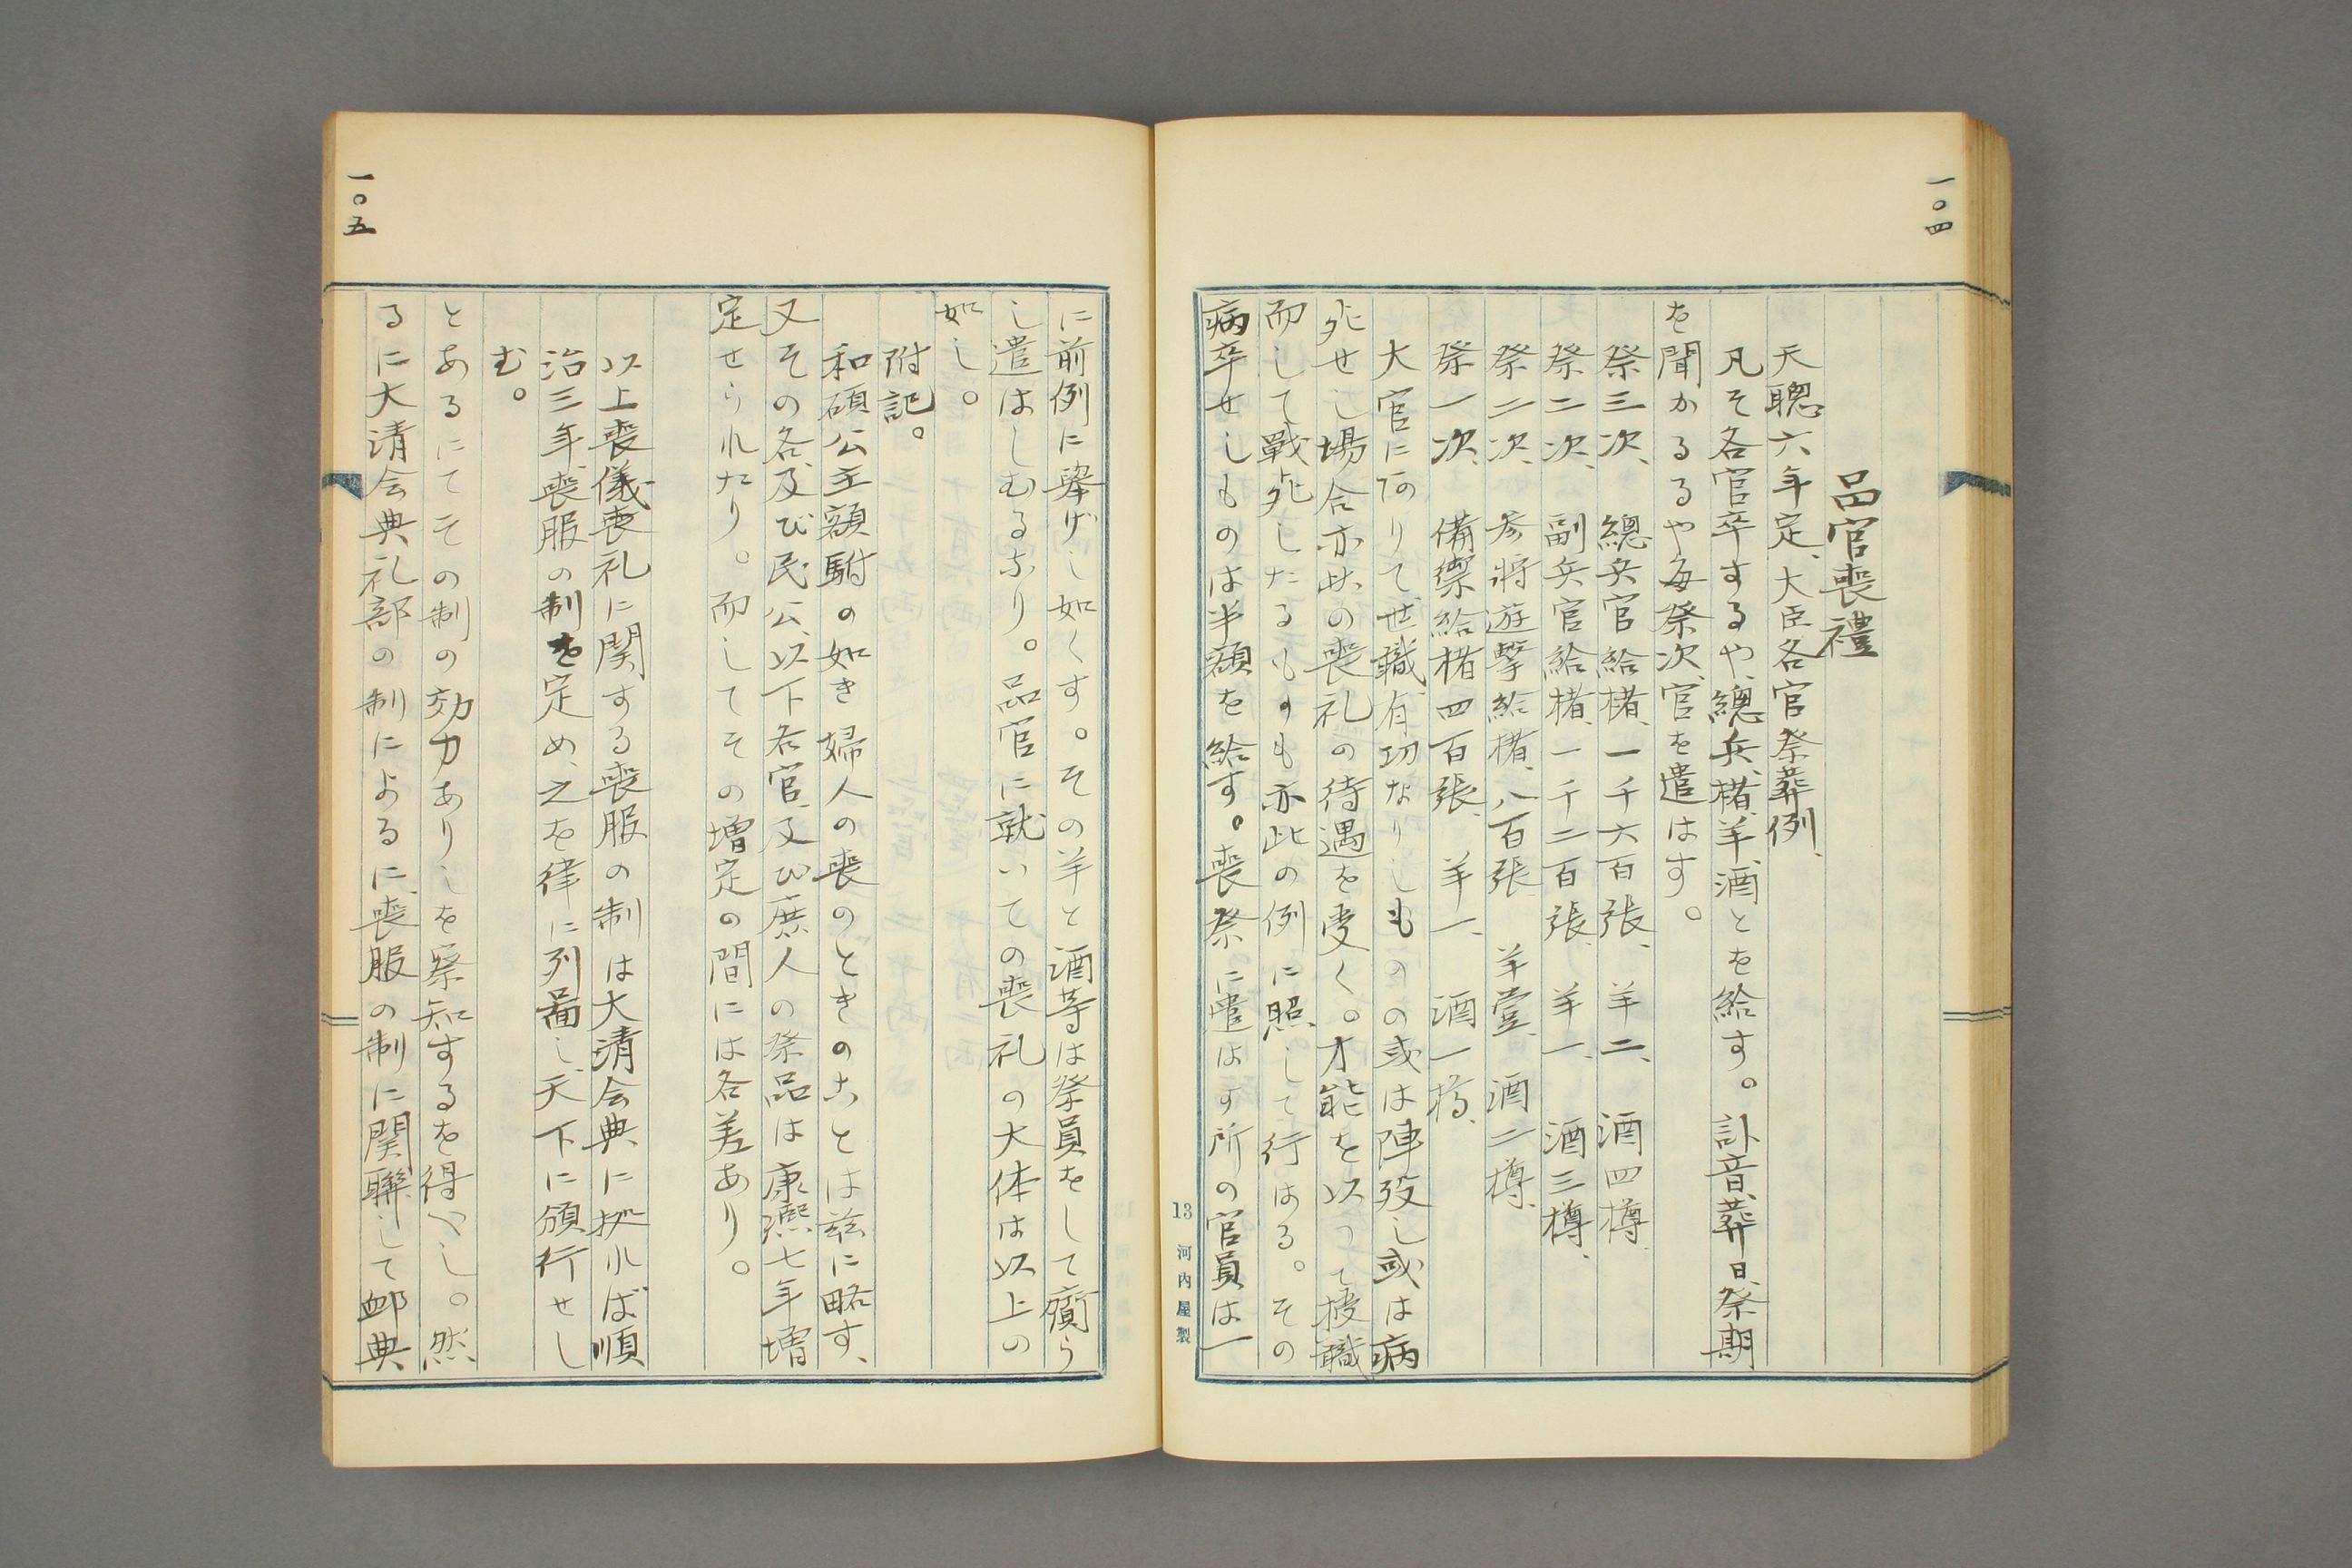 一〇四
品官喪禮
天聰六年定、大臣各官祭葬例、
凡そ各官卒するや、總兵、楮、羊、酒とを給す。訃音、葬日、祭期
を聞かるるや每祭次、官を遣はす。
祭三次、總兵官給楮、一千六百張、羊二、酒四樽
祭二次、副兵官給楮、一千二百張、羊一、酒三樽、
祭二次、参將遊擊給楮、八百張、羊壹、酒二樽、
祭一次、備禦給楮四百張、羊一、酒一樽、
大官に有りて世職、有功なりしものの或は陣歿し或は病
死せし場合亦此の喪礼の待遇を受く。才能を以つて授職
而して戰死したるものも亦此の例に照して行はる。その
病卒せしものは半額を給す。喪祭に遣はす所の官員は一
13 河内屋製
一〇五
に前例に擧げし如くす。その羊と酒等は祭員をして齎ら
し遣はしむるなり。品官に就いての喪礼の大体は以上の
如し。
附記。
和碩公主額駙の如き婦人の喪のときのことは茲に略す、
又その各、及び民公、以下各官、及び庶人の祭品は康熙七年増
定せられたり。而してその増定の間には各差あり。
以上喪儀喪礼に関する喪服の制は大清会典に拠れば順
治三年、喪服の制を定め、之を律に列圖し、天下に頒行せし
む。
とあるにてその制の効力ありしを察知するを得べし。然
るに大清会典礼部の制によるに、喪服の制に関聯して卹典